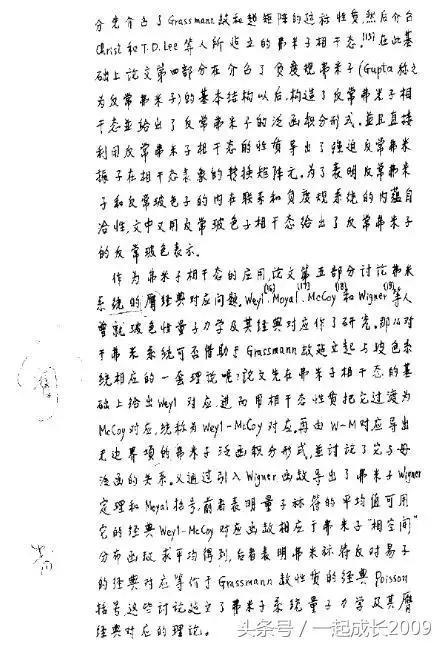 分先介绍了Grassmann数和超矩阵的运标性质,然后介绍
Christ和T.D.Lee等人所建立的弗米子相干态.[15]在此基
础上论文第四部分在介绍了负度规弗米子(Gupta称之
为反常弗米子)的基本结构以后,构造了反常弗米子相
干态並给出了反常弗米子的泛函积分形式.並且直接
利用反常弗米子相干态的性质导出了强迫反常弗米
振子在相干态表象的转换矩阵元.为了表明反常弗米
子和反常玻色子的内在联系和负度规系统的内蕴自
洽性,文中又用反常玻色子相干态给出了反常弗米子
的反常玻色表示.
作为弗米子相干态的应用,论文第五部分讨论弗米
系统的膺经典对应问题,Weyl[16].Moyal[17].McCoy[18]和Wigner[19]等人
曾就玻色性量子力学及其经典对应作了研究.那么对
于弗米系统可否借助于Grassmann数建立起与玻色系
统相应的一套理论呢?论文先在弗米子相干态的基
础上给出Weyl对应进而用相干态性质把它过渡为
McCoy对应,统称为Weyl-McCoy对应,再由W-M对应导出
无边界项的弗米子泛函积分形式,並讨论了它与母
泛函的关系.又通过引入Wigner函数导出了弗米子Wigner
定理和Moyal括号,前者表明量子标符的平均值可用
它的经典Weyl-McCoy对应函数相应于弗米子"相空间"
分布函数求平均得到,后者表明弗米标符反对易子
的经典对应等价于Grassmann数性质的经典Poisson
括号,这些讨论建立了弗米子系统量子力学及其膺
经典对应的理论。
头条号 / 一起成长2009